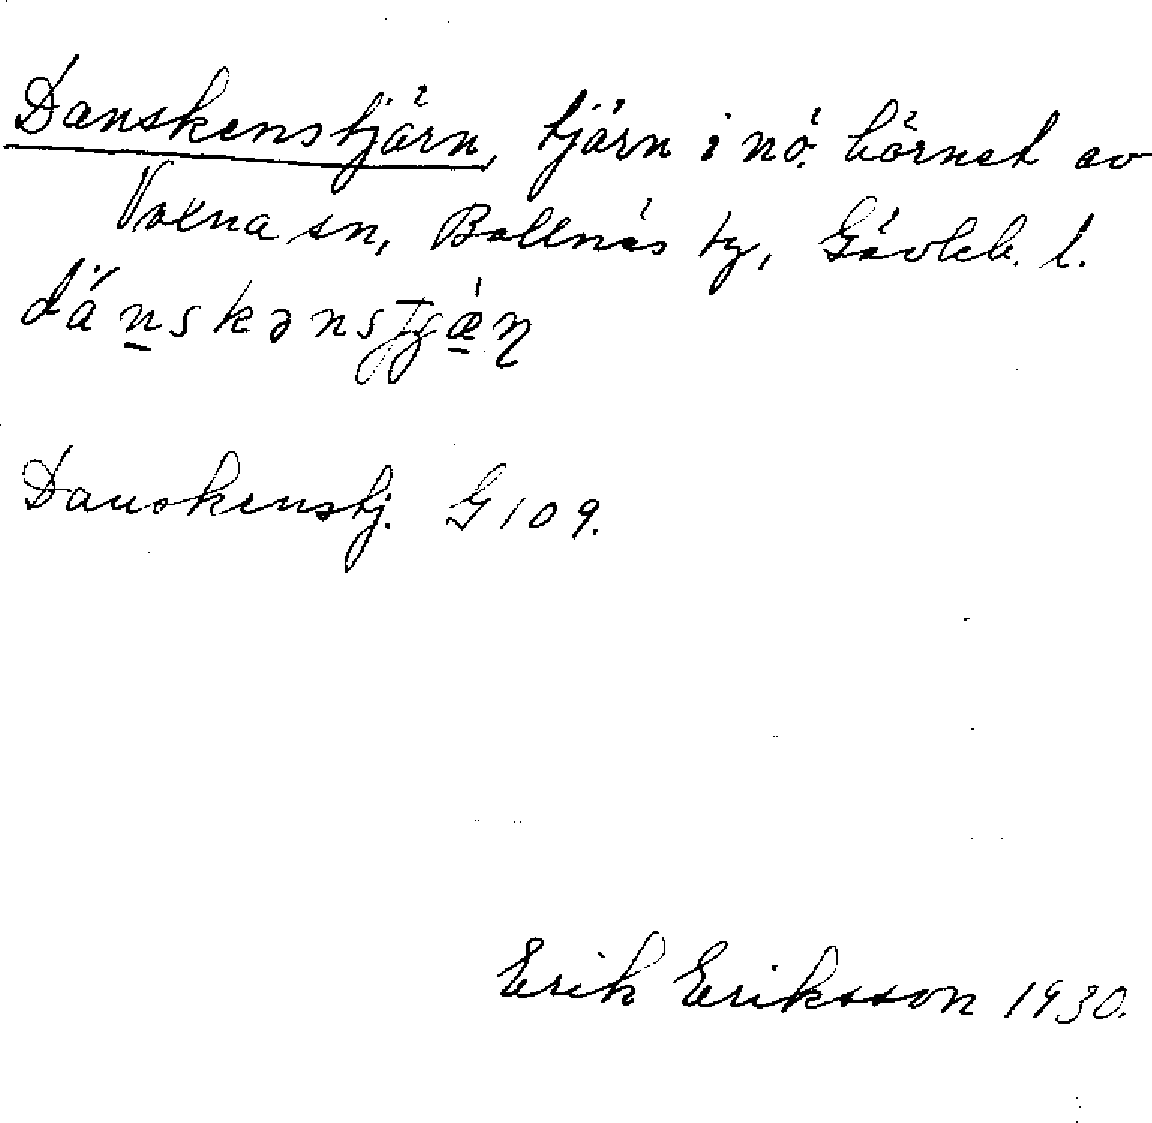 Danskenstjärn, tjärn i nö. hörnet av
Voxna sn, Bollnäs tg, Gävleb. l.
Danskenstj. G 109.
Erik Eriksson 1930.